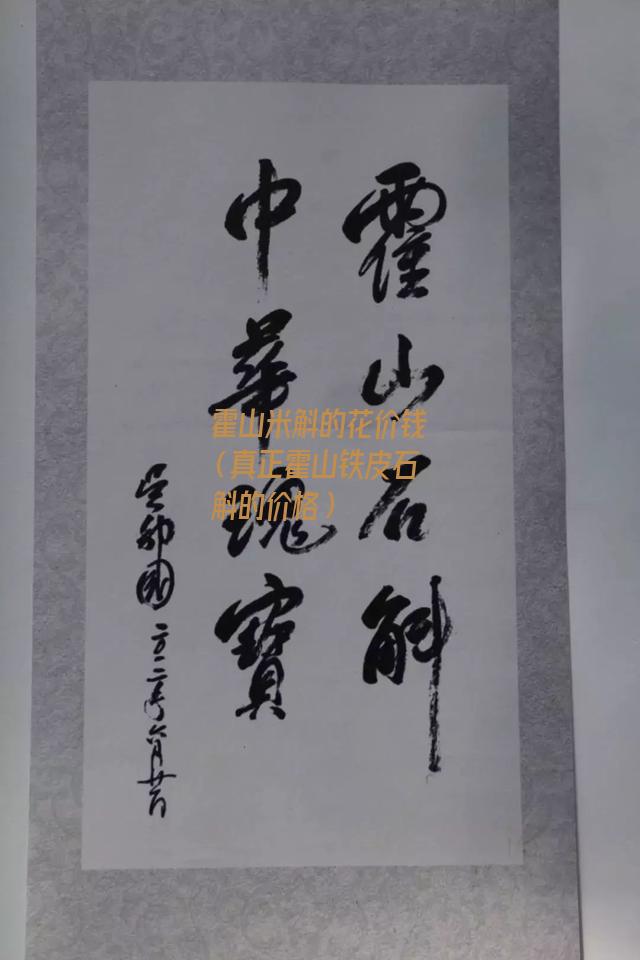 霍山石斛
中華瑰寶
吴邦國 二〇一二年六月廿一日
霍山米斛的花价钱
（真正霍山铁皮石
斛的价格）